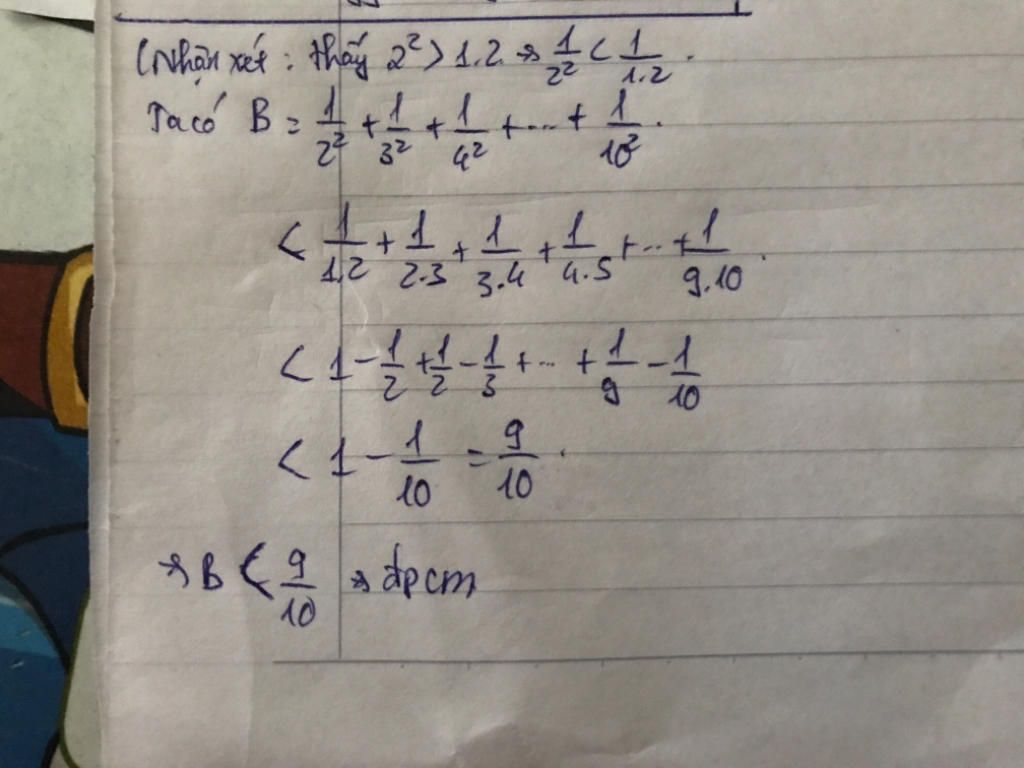 (Nhận xét: thấy 2² > 1.2 → 1/2² < 1/1.2.
Ta có B = 1/2² + 1/3² + 1/4² + ... + 1/10².
< 1/1.2 + 1/2.3 + 1/3.4 + 1/4.5 + ... + 1/9.10.
< 1 - 1/2 + 1/2 - 1/3 + ... + 1/9 - 1/10
< 1 - 1/10 = 9/10.
→ B < 9/10 → đpcm